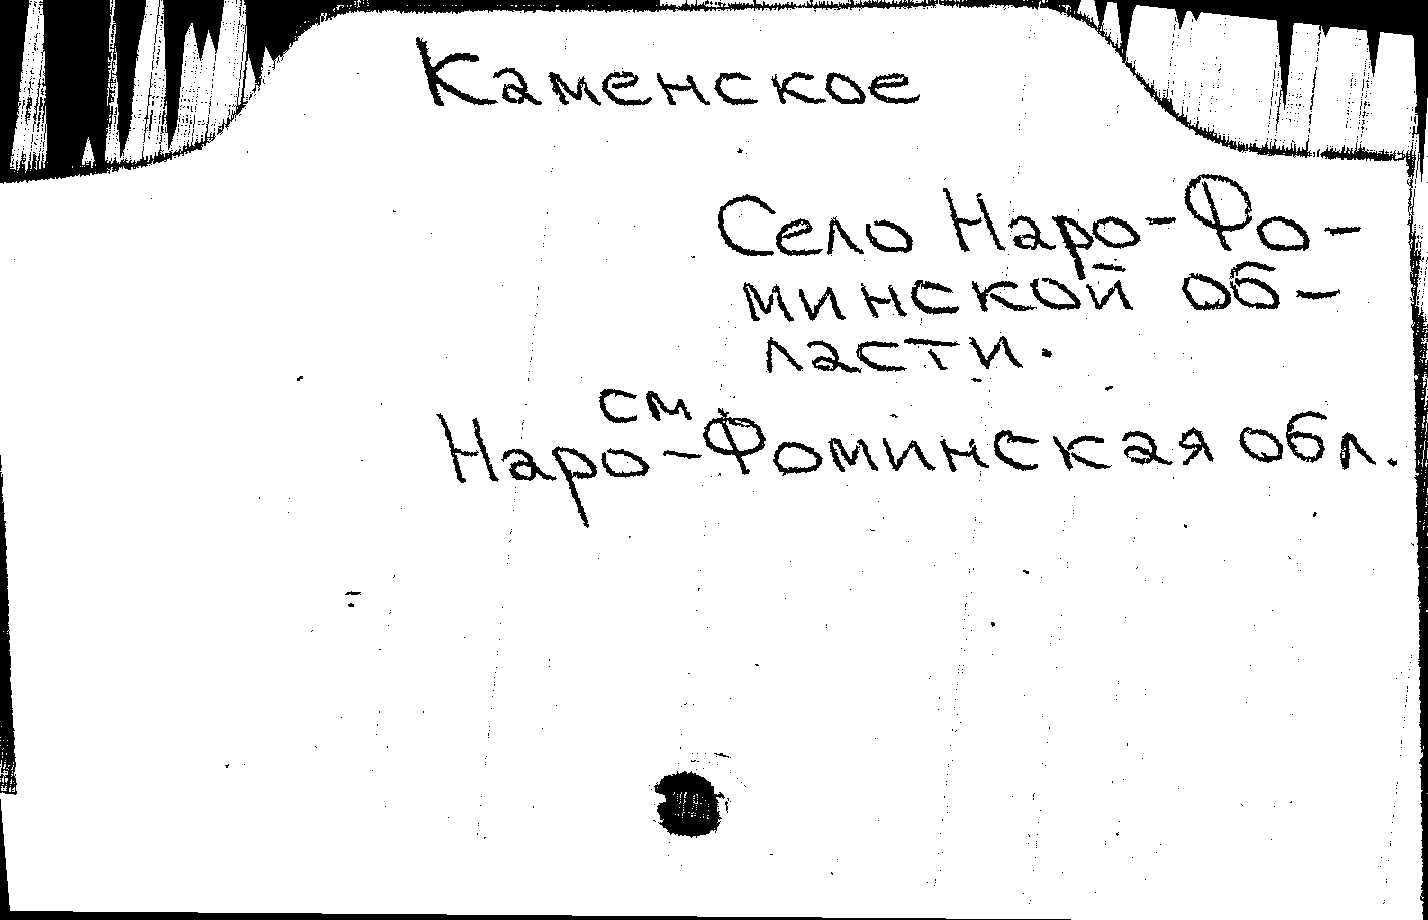 Каменское
Село Наро-Фо-
минской об-
ласти.
см
Наро-Фоминская обл.